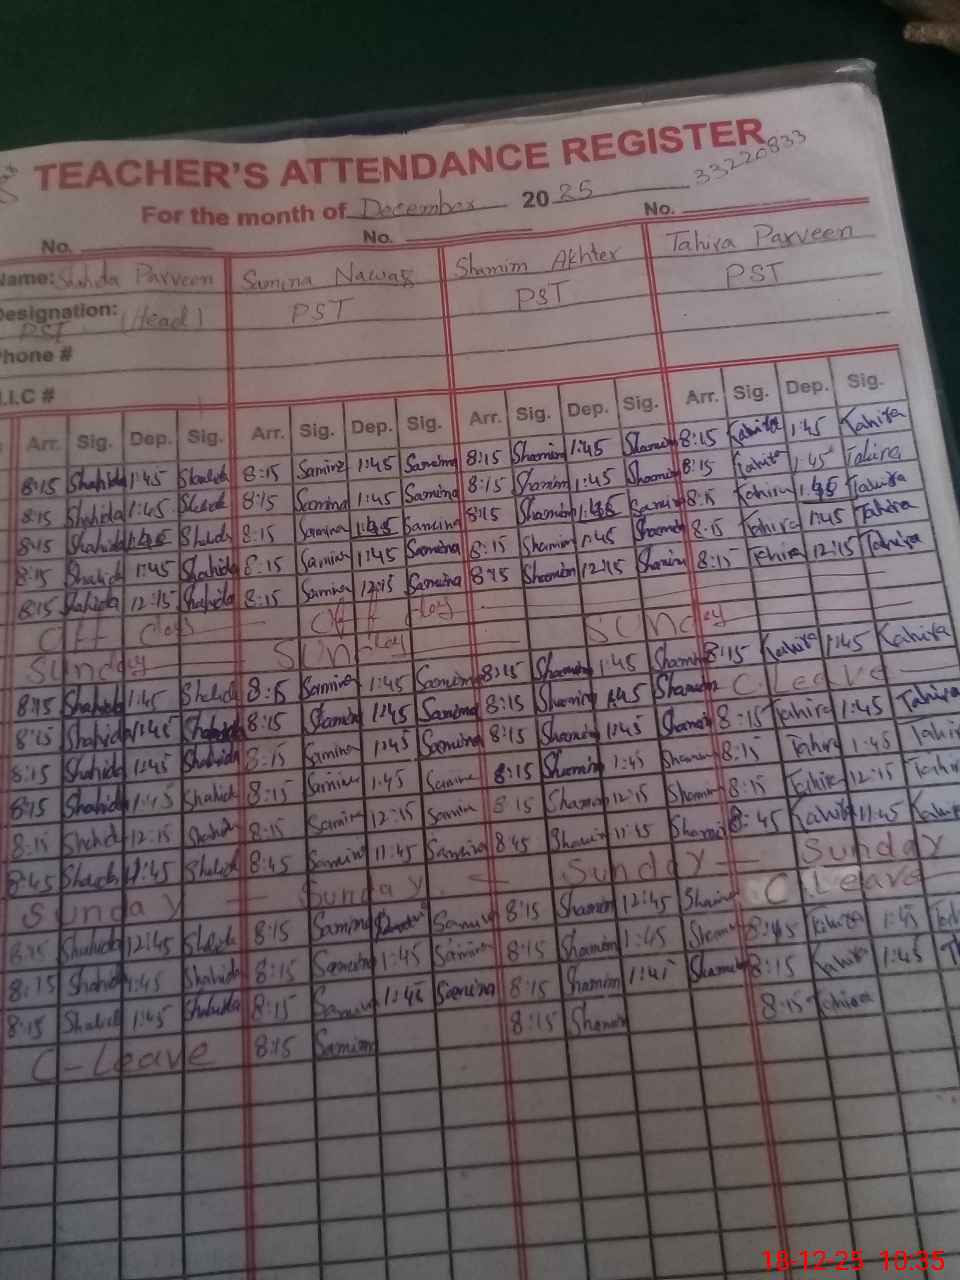 TEACHER'S ATTENDANCE REGISTER
33220833
For the month of December 2025
No. No. No.
Name: Shahida Parveen Samina Nawaz Shamim Akhter Tahira Parveen
Designation: PST (Head) PST PST PST
Phone #
I.C #
Arr. Sig. Dep. Sig. Arr. Sig. Dep. Sig. Arr. Sig. Dep. Sig. Arr. Sig. Dep. Sig.
8:15 Shahida 1:45 Shahida 8:15 Samina 1:45 Samina 8:15 Shamim 1:45 Shamim 8:15 Tahira 1:45 Tahira
8:15 Shahida 1:45 Shahida 8:15 Samina 1:45 Samina 8:15 Shamim 1:45 Shamim 8:15 Tahira 1:45 Tahira
8:15 Shahida 1:45 Shahida 8:15 Samina 1:45 Samina 8:15 Shamim 1:45 Samina 8:15 Tahira 1:45 Tahira
8:15 Shahida 1:45 Shahida 8:15 Samina 1:45 Samina 8:15 Shamim 1:45 Shamim 8:15 Tahira 1:45 Tahira
8:15 Shahida 12:15 Shahida 8:15 Samina 12:15 Samina 8:15 Shamim 12:15 Shamim 8:15 Tahira 12:15 Tahira
Off day Off day
Sunday Sunday Sunday
8:15 Shahida 1:45 Shahida 8:15 Samina 1:45 Samina 8:15 Shamim 1:45 Shamim 8:15 Tahira 1:45 Tahira
8:15 Shahida 1:45 Shahida 8:15 Shamim 1:45 Samina 8:15 Shamim 1:45 Shamim C Leave
8:15 Shahida 1:45 Shahida 8:15 Samina 1:45 Samina 8:15 Shamim 1:45 Shamim 8:15 Tahira 1:45 Tahira
8:15 Shahida 1:45 Shahida 8:15 Samina 1:45 Samina 8:15 Shamim 1:45 Shamim 8:15 Tahira 1:45 Tahir
8:15 Shahida 12:15 Shahida 8:15 Samina 12:15 Samina 8:15 Shamim 12:15 Shamim 8:15 Tahira 12:15 Tahir
8:45 Shahida 11:45 Shahida 8:45 Samina 11:45 Samina 8:45 Shamim 11:45 Shamim 8:45 Tahira 11:45
Sunday Sunday Sunday Sunday
8:15 Shahida 12:45 Shahida 8:15 Samina Samina 8:15 Shamim 12:45 Shamim C Leave
8:15 Shahida 1:45 Shahida 8:15 Samina 1:45 Samina 8:15 Shamim 1:45 Shamim 8:45 Tahira 1:45
8:15 Shahida 1:45 Shahida 8:15 Samina 1:45 Samina 8:15 Shamim 1:45 Shamim 8:15 Tahira 1:45
C-Leave 8:15 Samina 8:15 Shamim 8:15 Tahira
18-12-25 10:35